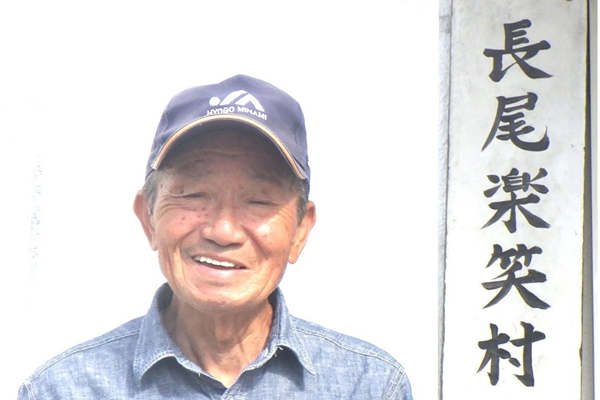 HYOGO MINAMI
長尾楽笑村